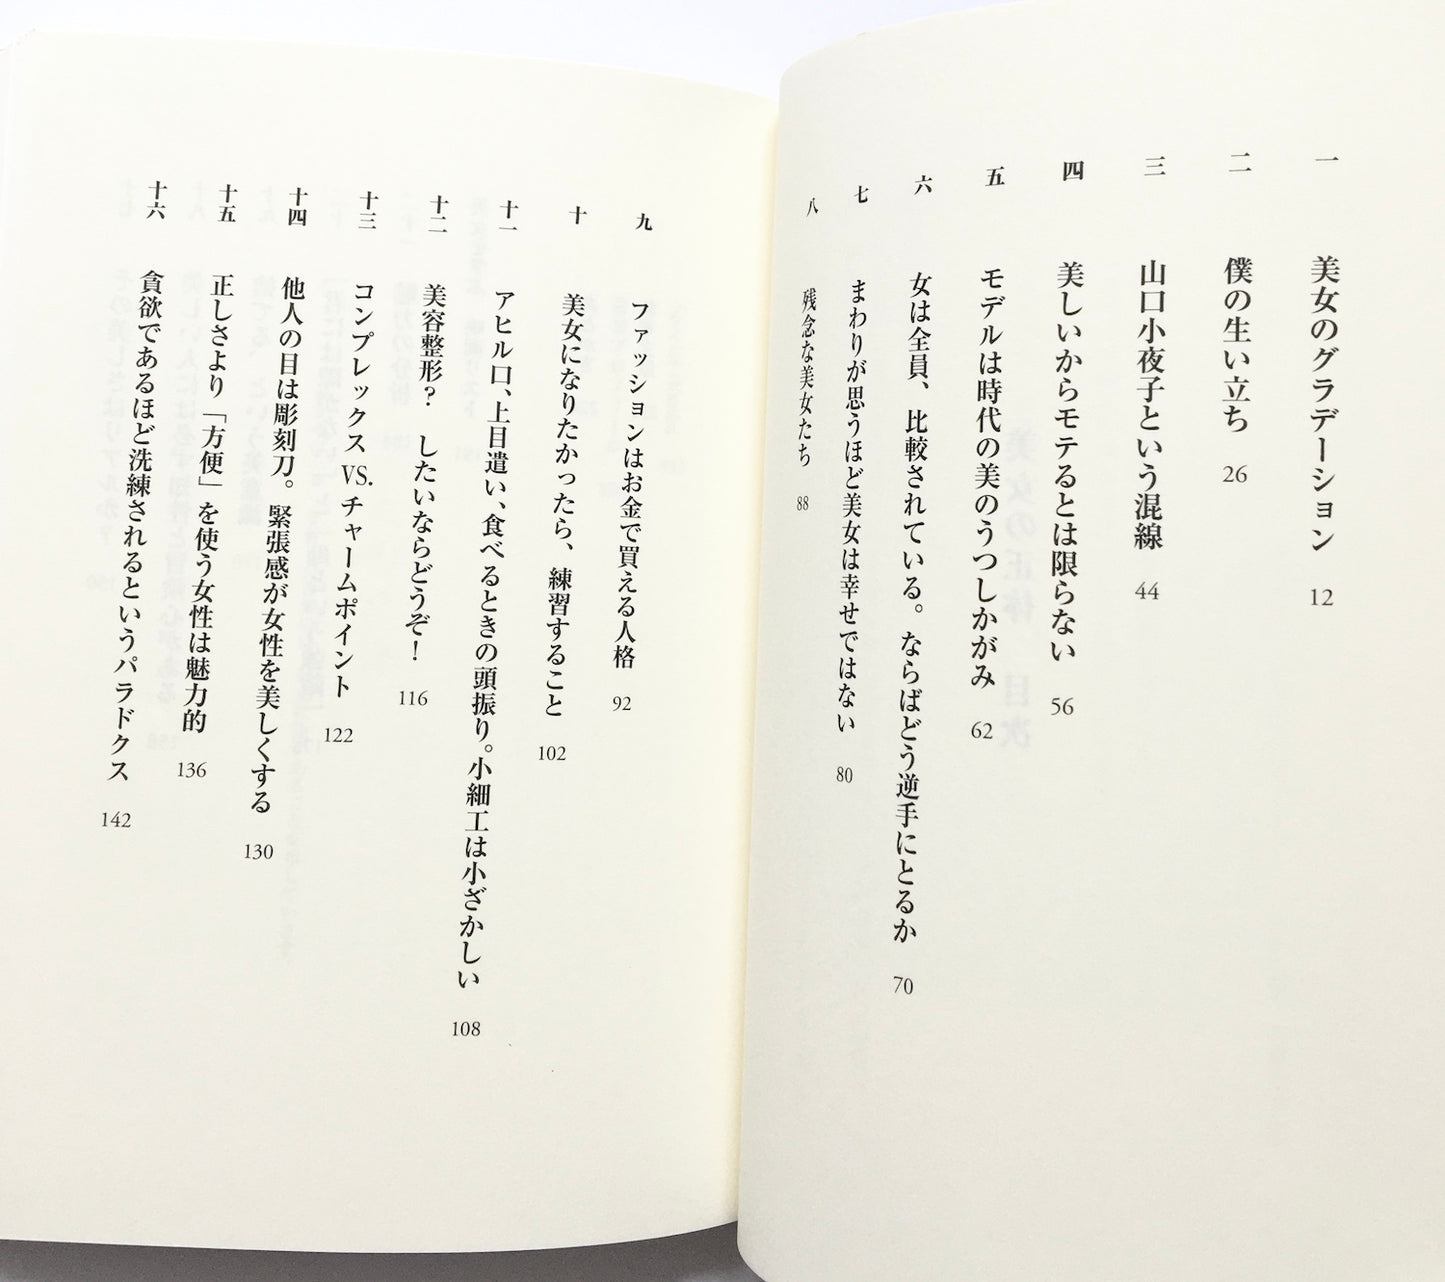 一 美女のグラデーション 12
二 僕の生い立ち 26
三 山口小夜子という混線 44
四 美しいからモテるとは限らない 56
五 モデルは時代の美のうつしかがみ 62
六 女は全員、比較されている。ならばどう逆手にとるか 70
七 まわりが思うほど美女は幸せではない 80
八 残念な美女たち 88
九 ファッションはお金で買える人格 92
十 美女になりたかったら、練習すること 102
十一 アヒル口、上目遣い、食べるときの頭振り。小細工は小ざかしい 108
十二 美容整形? したいならどうぞ! 116
十三 コンプレックス VS. チャームポイント 122
十四 他人の目は彫刻刀。緊張感が女性を美しくする 130
十五 正しさより「方便」を使う女性は魅力的 136
十六 貪欲であるほど洗練されるというパラドクス 142
美女の正体 目次